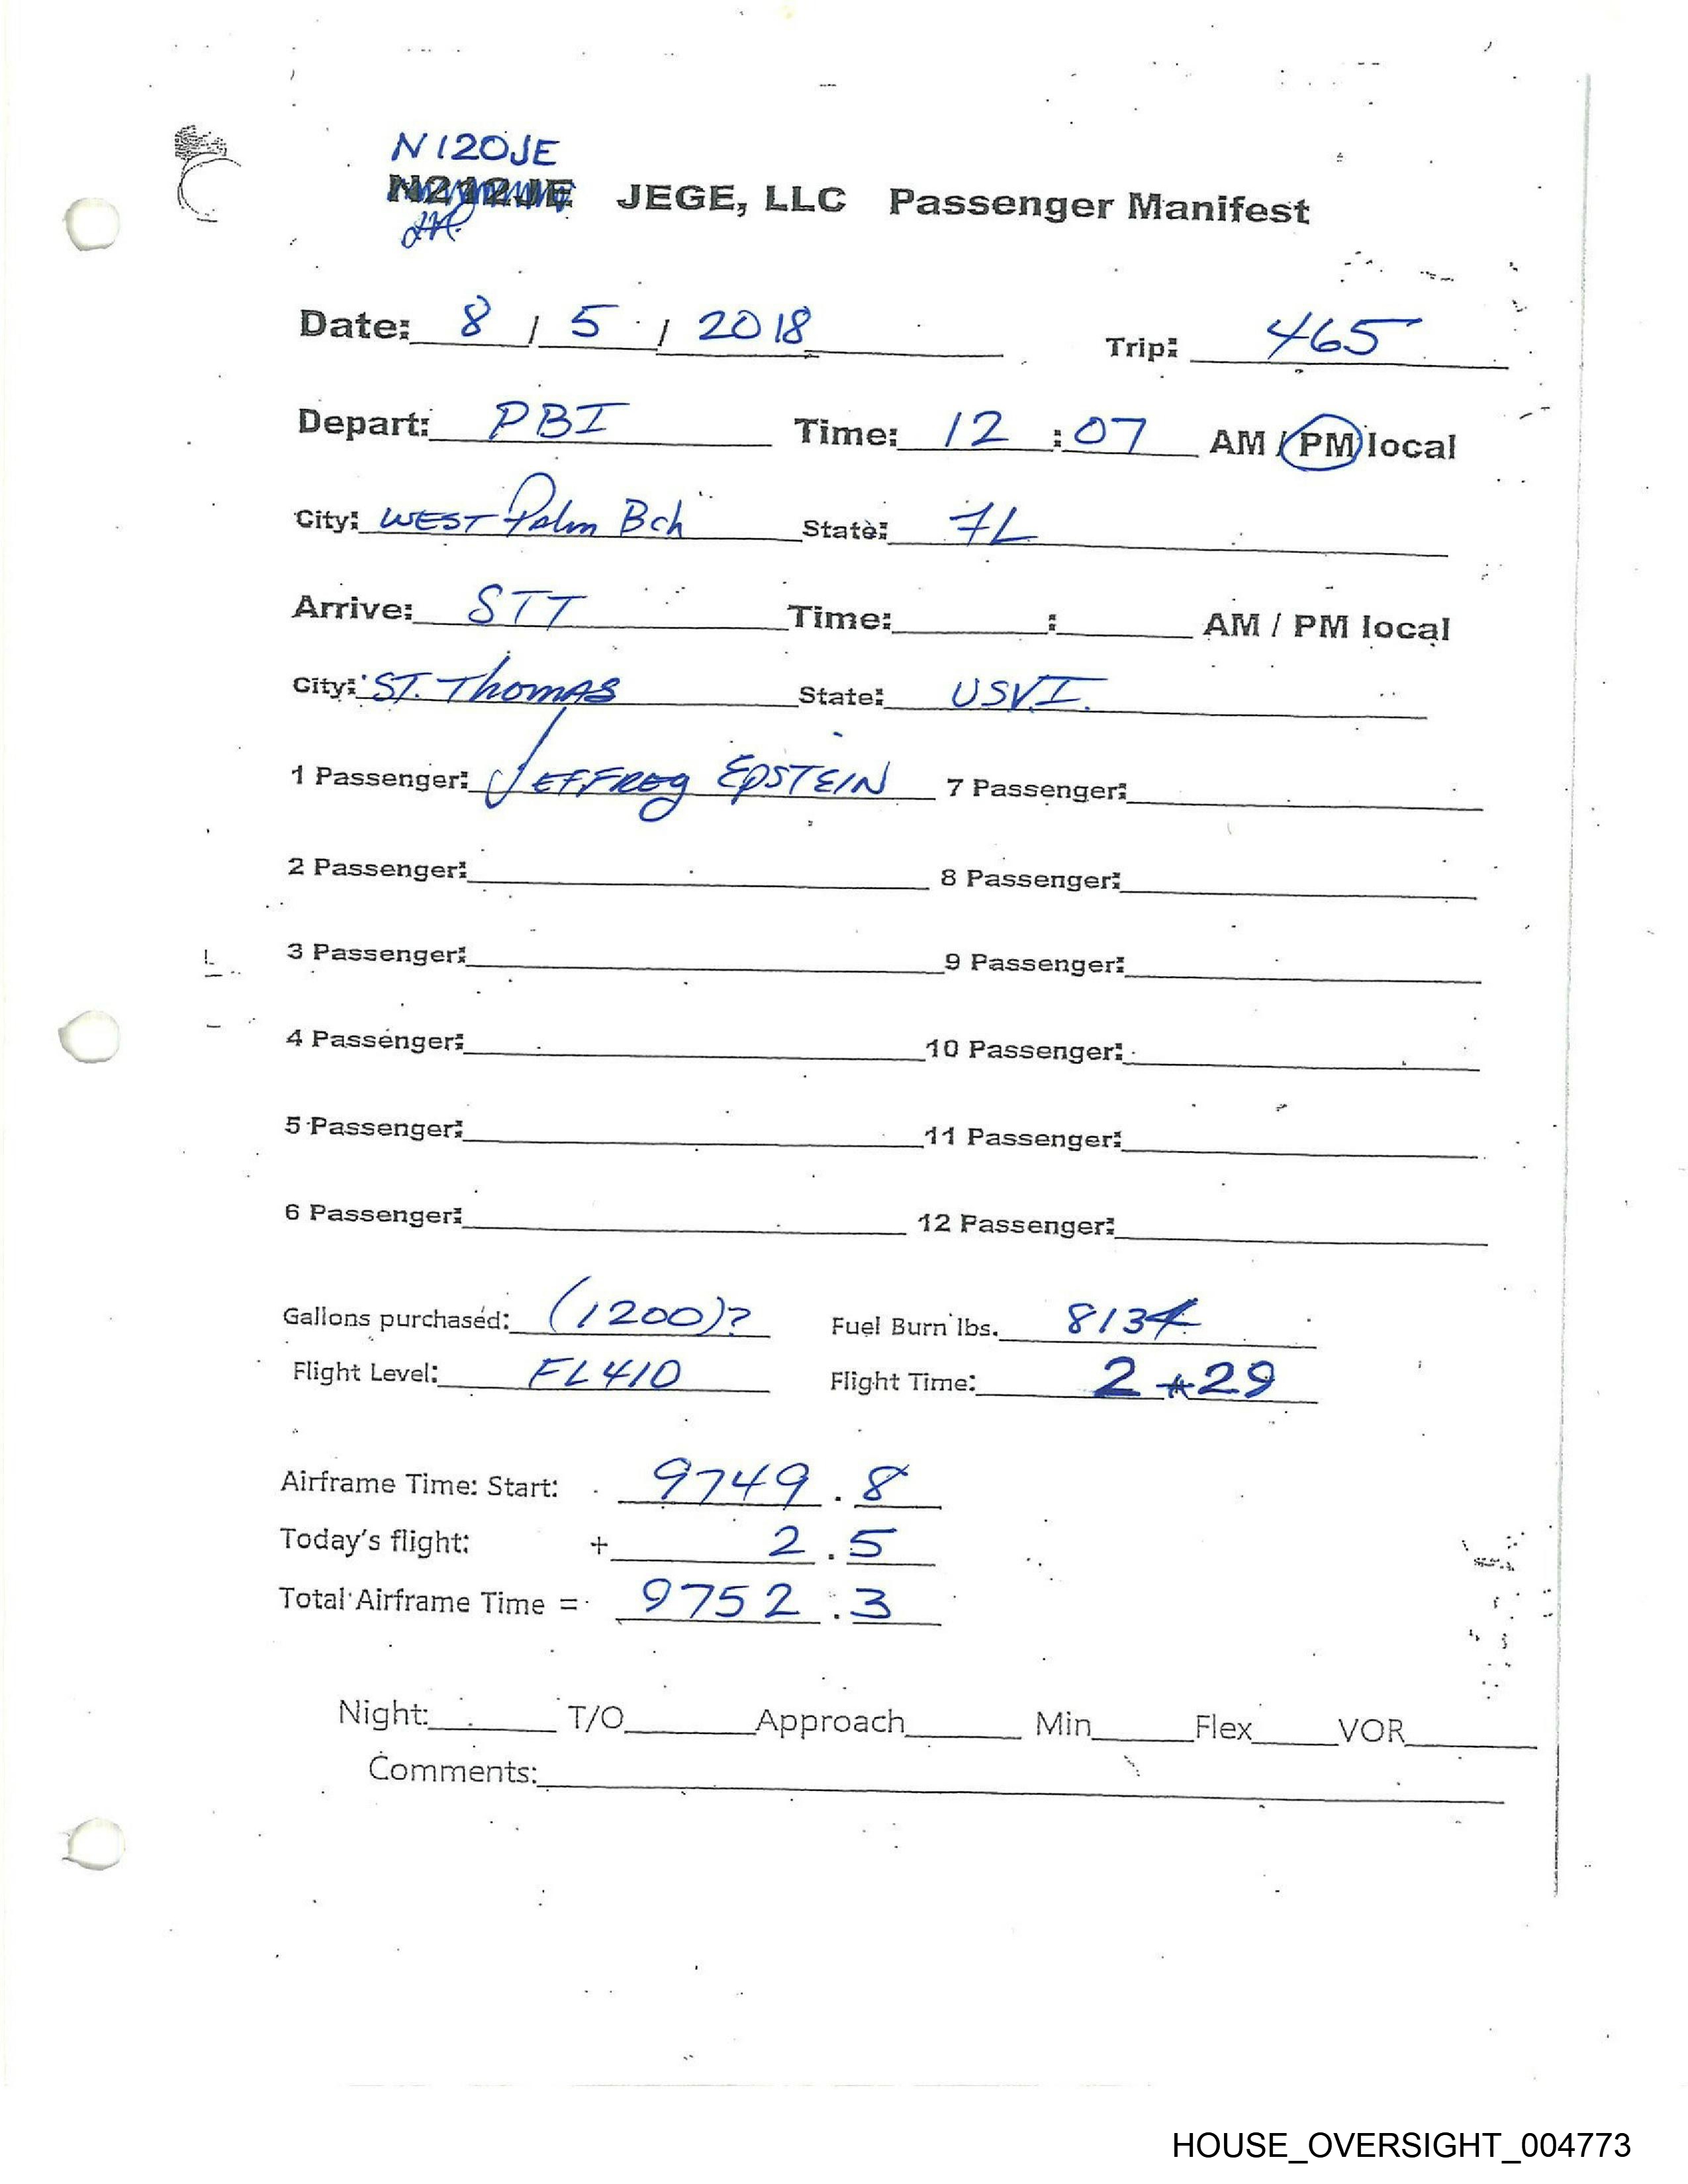 N120JE
N212JE JEGE, LLC Passenger Manifest
Date: 8 / 5 / 2018 Trip: 465
Depart: PBI Time: 12 : 07 AM / PM local
City: WEST Palm Bch State: FL
Arrive: STT Time: : AM / PM local
City: ST. Thomas State: USVI.
1 Passenger: JEFFREY EPSTEIN 7 Passenger:
2 Passenger: 8 Passenger:
3 Passenger: 9 Passenger:
4 Passenger: 10 Passenger:
5 Passenger: 11 Passenger:
6 Passenger: 12 Passenger:
Gallons purchased: (1200)? Fuel Burn lbs. 8134
Flight Level: FL410 Flight Time: 2+29
Airframe Time: Start: 9749.8
Today's flight: + 2.5
Total Airframe Time = 9752.3
Night: T/O Approach Min Flex VOR
Comments:
HOUSE_OVERSIGHT_004773